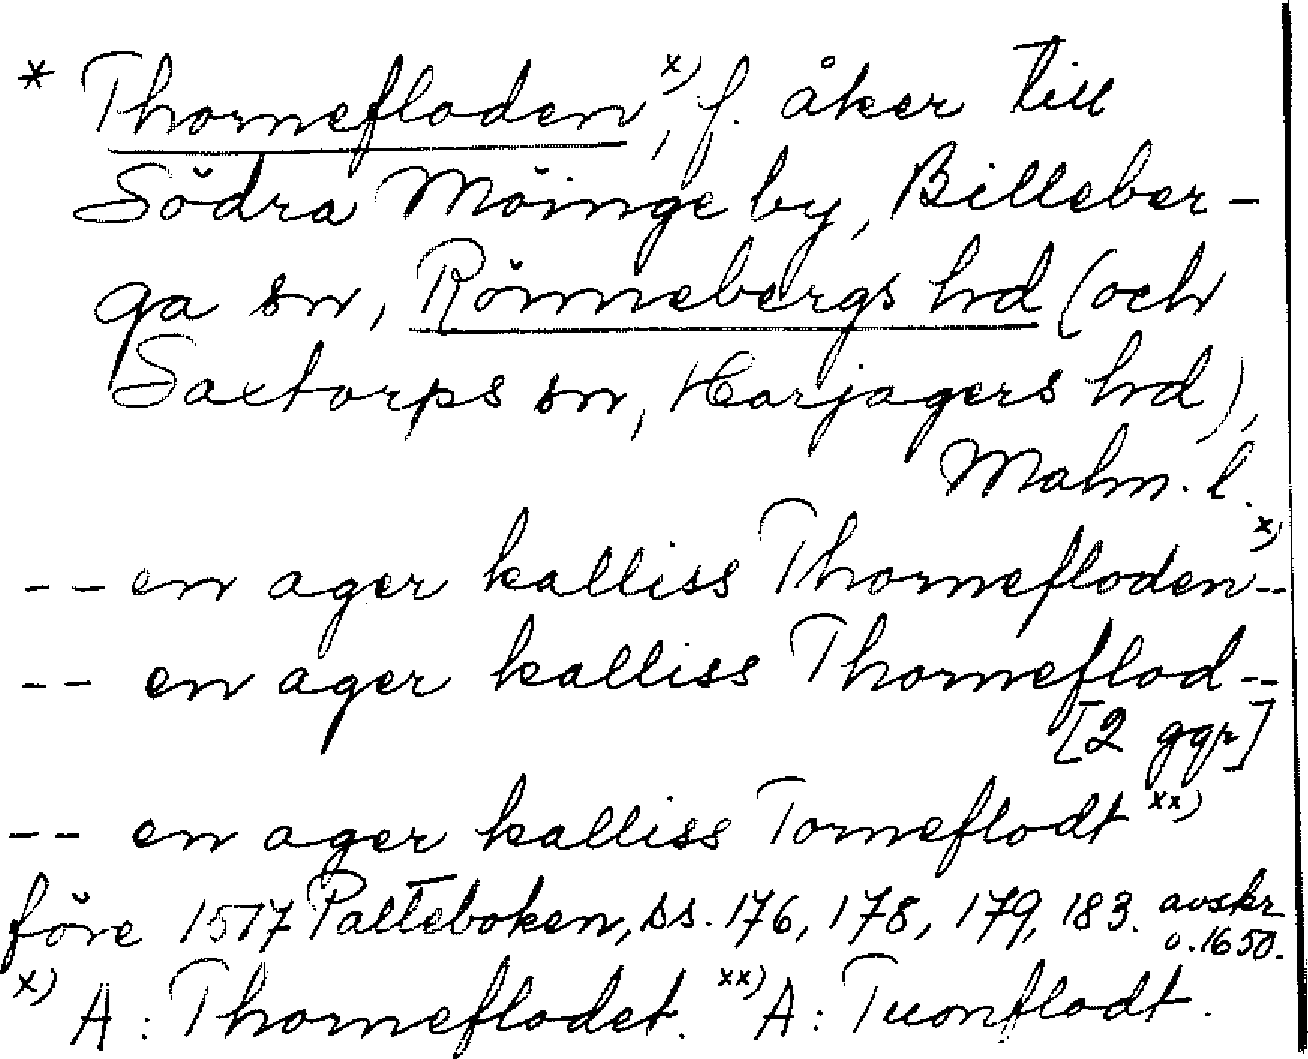 * Thornefloden x), f. åker till
Södra Möinge by, Billeber-
ga sn, Rönnebergs hd (och
Saxtorps sn, Harjagers hd),
Malm. l.
-- en ager kalliss Thornefloden x) --
-- en ager kalliss Thorneflod --
[2 ggr]
-- en ager kalliss Torneflodt xx)
före 1517 Palteboken, ss. 176, 178, 179, 183. avskr
o. 1650.
x) A: Thorneflodet. xx) A: Tuornflodt.